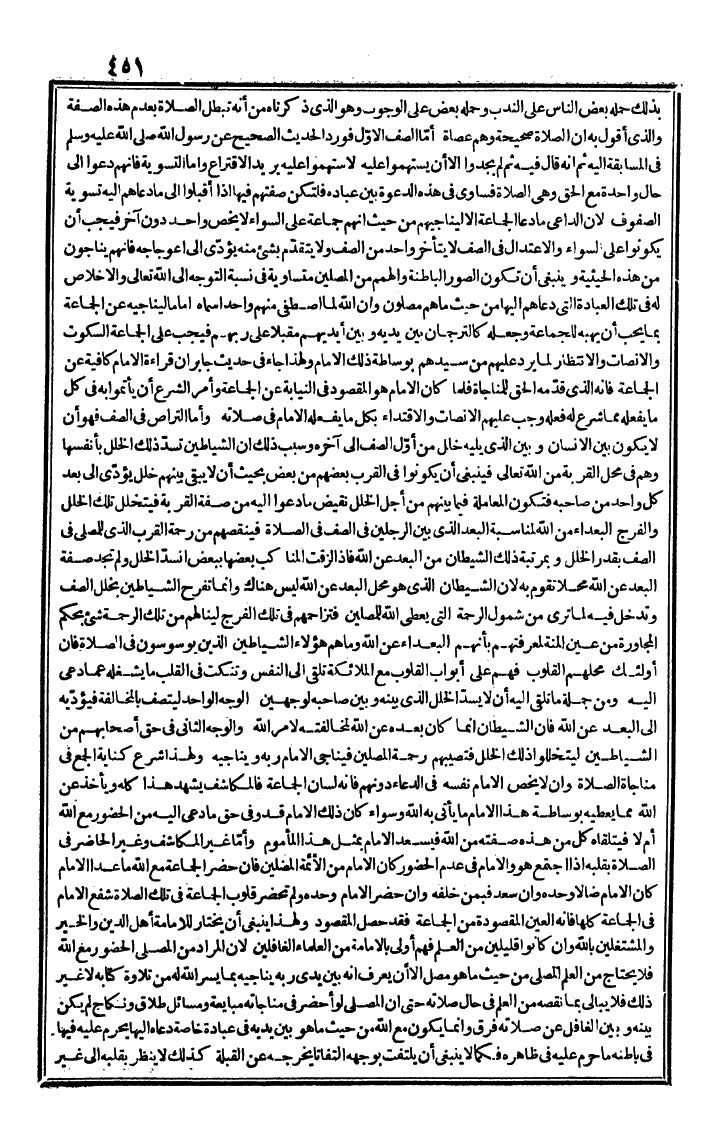 ٤٥١
بذلك حمله بعض الناس على الندب وحمله بعض على الوجوب وهو الذى ذكرناه من أنه تبطل الصلاة بعدم هذه الصفة
والذى أقول به ان الصلاة صحيحة وهم عصاة أمّا الصف الاوّل فورد الحديث الصحيح عن رسول الله صلى الله عليه وسلم
فى المسابقة اليه ثم انه قال فيه ثم لم يجدوا الا أن يستهموا عليه لاستهموا عليه يريد الاقتراع واما التسوية فانهم دعوا الى
حال واحدة مع الحق وهى الصلاة فساوى فى هذه الدعوة بين عباده فلتكن صفتهم فيها اذا أقبلوا الى ما دعاهم اليه تسوية
الصفوف لان الداعى ما دعا الجماعة الا ليناجيهم من حيث انهم جماعة على السواء لا يخص واحد دون آخر فيجب أن
يكونوا على السواء والاعتدال فى الصف لا يتأخر واحد من الصف ولا يتقدّم بشئ منه يؤدّى الى اعوجاجه فانهم يناجون
من هذه الحيثية وينبغى أن تكون الصور الباطنة والهمم من المصلين متساوية فى نسبة التوجه الى الله تعالى والاخلاص
له فى تلك العبادة التى دعاهم اليها من حيث ما هم مصلون وان الله لما اصطفى منهم واحدا سماه اماما ليناجيه عن الجماعة
بما يحب أن يهبه للجماعة وجعله كالترجمان بين يديه وبين أيديهم مقبلا على ربهم فيجب على الجماعة السكوت
والانصات والانتظار لما يرد عليهم من سيدهم بوساطة ذلك الامام ولهذا جاء فى حديث جابر ان قراءة الامام كافية عن
الجماعة فانه الذى قدّمه الحق للمناجاة فلما كان الامام هو المقصود فى النيابة عن الجماعة وأمر الشرع أن يأتموا به فى كل
ما يفعله مما شرع له فعله وجب عليهم الانصات والاقتداء بكل ما يفعله الامام فى صلاته وأما التراص فى الصف فهو أن
لا يكون بين الانسان وبين الذى يليه خلل من أوّل الصف الى آخره وسبب ذلك ان الشياطين تسدّ ذلك الخلل بأنفسها
وهم فى محل القربة من الله تعالى فينبغى أن يكونوا فى القرب بعضهم من بعض بحيث أن لا يبقى بينهم خلل يؤدّى الى بعد
كل واحد من صاحبه فتكون المعاملة فيما بينهم من أجل الخلل نقيض ما دعوا اليه من صفة القربة فيتخلل تلك الخلل
والفرج البعداء من الله لمناسبة البعد الذى بين الرجلين فى الصف فى الصلاة فينقصهم من رحمة القرب الذى للمصلى فى
الصف بقدر الخلل وبمرتبة ذلك الشيطان من البعد عن الله فاذا لزقت المناكب بعضها ببعض انسدّ الخلل ولم تجد صفة
البعد عن الله محلا تقوم به لان الشيطان الذى هو محل البعد عن الله ليس هناك وانما تفرح الشياطين بخلل الصف
وتدخل فيه لما ترى من شمول الرحمة التى يعطى الله للمصلين فتزاحمهم فى تلك الفرج لينالهم من تلك الرحمة شئ بحكم
المجاورة من عين المنة لمعرفتهم بأنهم البعداء عن الله وما هم هؤلاء الشياطين الذين يوسوسون فى الصلاة فان
أولئك محلهم القلوب فهم على أبواب القلوب مع الملائكة تلقى الى النفس وتنكت فى القلب ما يشغله عما دعى
اليه ومن جملة ما تلقى اليه أن لا يسدّ الخلل الذى بينه وبين صاحبه لوجهين الوجه الواحد ليتصف بالمخالفة فيؤدّيه
الى البعد عن الله فان الشيطان انما كان بعده عن الله لمخالفته لامر الله والوجه الثانى فى حق أصحابهم من
الشياطين ليتخللوا ذلك الخلل فتصيبهم رحمة المصلين فيناجى الامام ربه ويناجيه ولهذا شرع كناية الجمع فى
مناجاة الصلاة وان لا يخص الامام نفسه فى الدعاء دونهم فانه لسان الجماعة فالمكاشف يشهد هذا كله ويأخذ عن
الله مما يعطيه بوساطة هذا الامام ما يأتى به الله وسواء كان ذلك الامام قد وفى حق ما دعى اليه من الحضور مع الله
أم لا فيتلقاه كل من هذه صفته من الله فيسعد الامام بمثل هذا المأموم وأمّا غير المكاشف وغير الحاضر فى
الصلاة بقلبه اذا اجتمع هو والامام فى عدم الحضور كان الامام من الأئمة المضلين فان حضر الجماعة مع الله ما عدا الامام
كان الامام ضالا وحده وان سعد فبمن خلفه وان حضر الامام وحده ولم تحضر قلوب الجماعة فى تلك الصلاة شفع الامام
فى الجماعة كلها فانه العين المقصودة من الجماعة فقد حصل المقصود ولهذا ينبغى أن يختار للامامة أهل الدين والخير
والمشتغلين بالله وان كانوا قليلين من العلم فهم أولى بالامامة من العلماء الغافلين لان المراد من المصلى الحضور مع الله
فلا يحتاج من العلم المصلى من حيث ما هو مصل الا أن يعرف انه بين يدى ربه يناجيه بما يسر الله له من تلاوة كتابه لا غير
ذلك فلا يبالى بما نقصه من العلم فى حال صلاته حتى ان المصلى لو أحضر فى مناجاته مبايعة ومسائل طلاق ونكاح لم يكن
بينه وبين الغافل عن صلاته فرق وانما يكون مع الله من حيث ما هو بين يديه فى عبادة خاصة دعاه اليها يحرم عليه فيها
فى باطنه ما حرم عليه فى ظاهره فكما لا ينبغى أن يلتفت بوجهه التفاتا يخرجه عن القبلة كذلك لا ينظر بقلبه الى غير